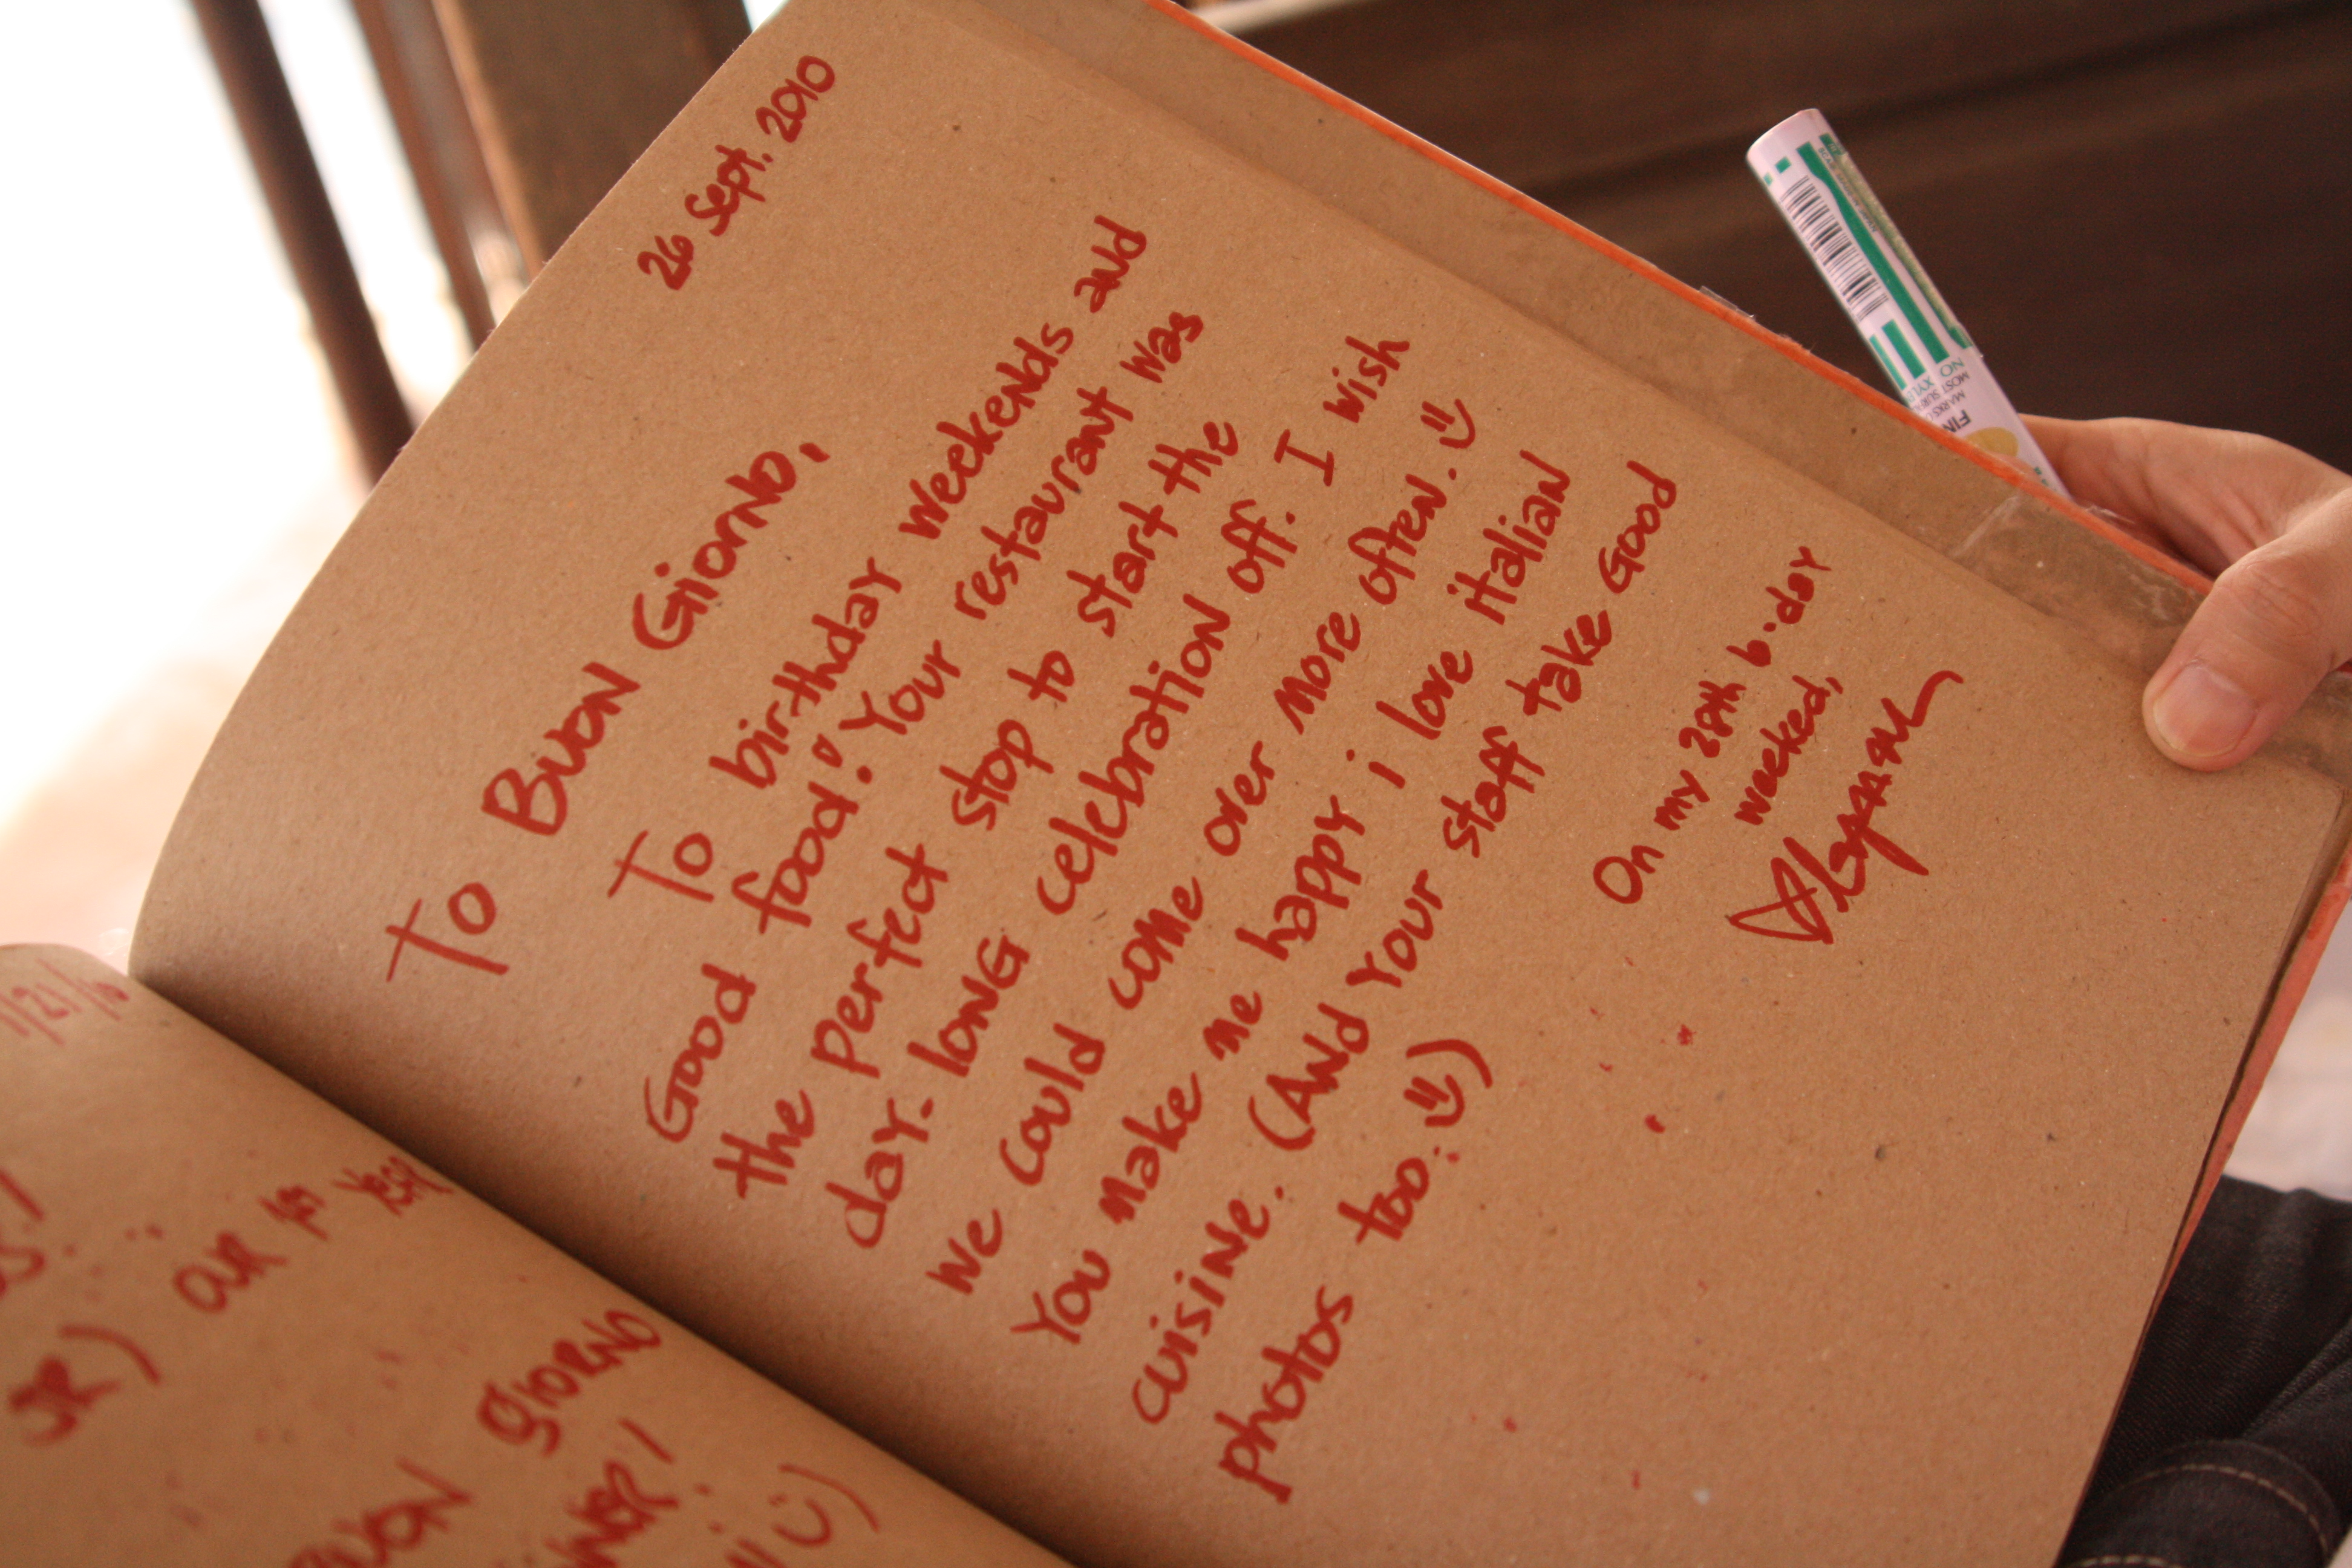 26 Sept. 2010
To Buon Giorno,
To birthday weekends and
Good food! Your restaurant was
the perfect stop to start the
day-long celebration off. I wish
we could come over more often. =)
You make me happy i love italian
cuisine. (And your staff take Good
photos too. =))
On my 28th b-day
weeked,
1/21/10
our 1st year
JR)
BUON GIORNO